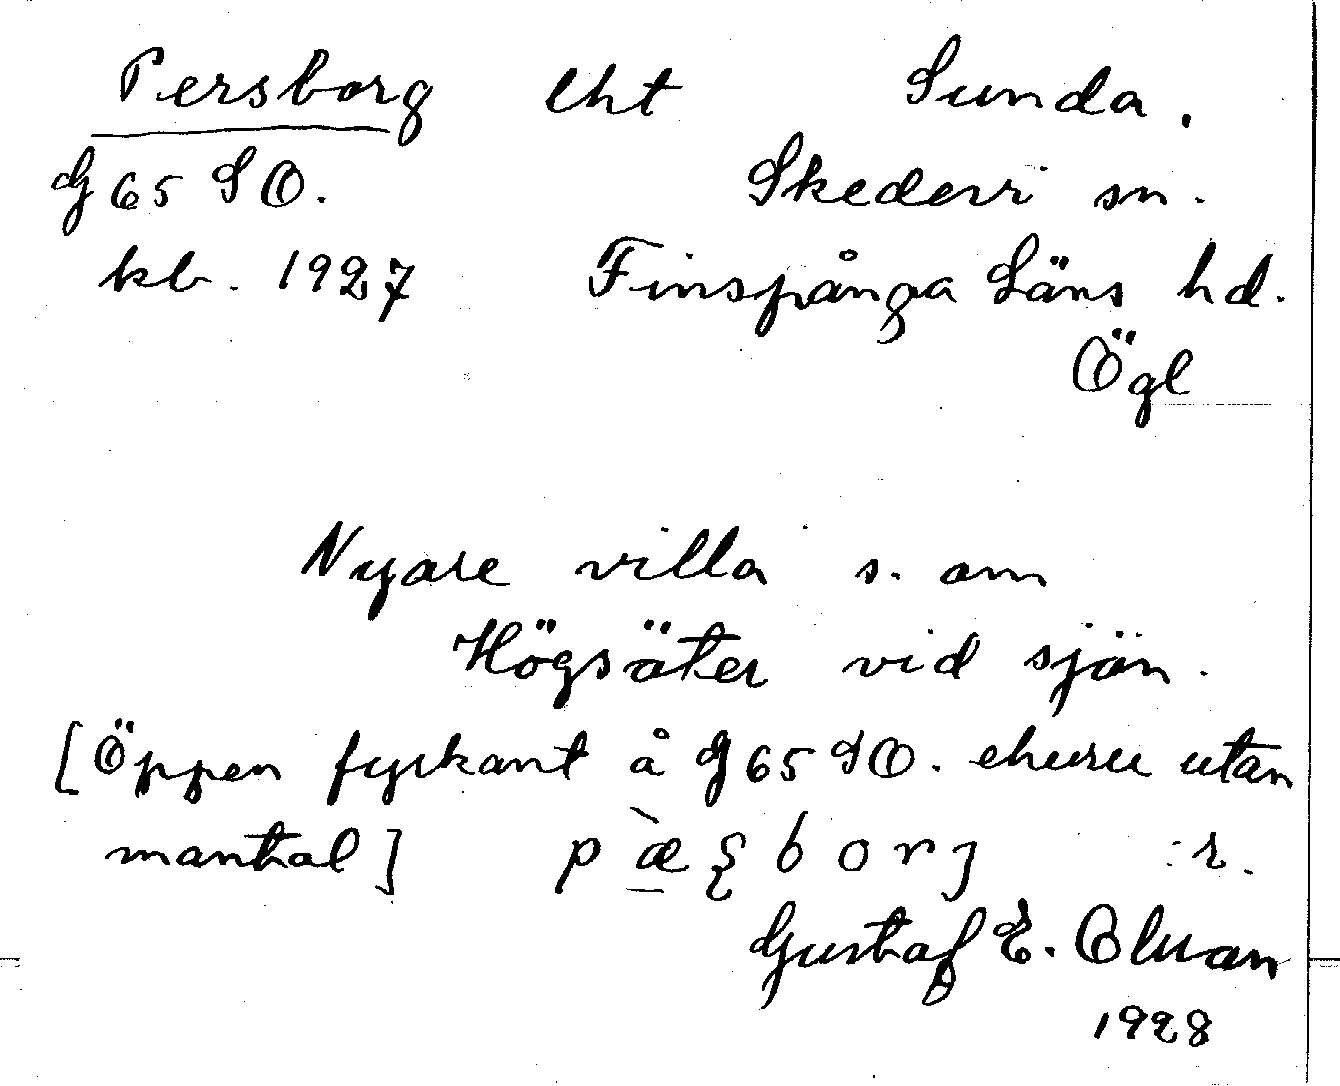 Persborg lht Sunda.
G 65 SO. Skedevi sn.
kb. 1927 Finspånga Läns hd.
Ögl
Nyare villa s. om
Högsäter vid sjön.
[Öppen fyrkant å G 65 SO. ehuru utan
mantal] p æ̀ ʂ b o r j :r.
Gustaf E.
1928